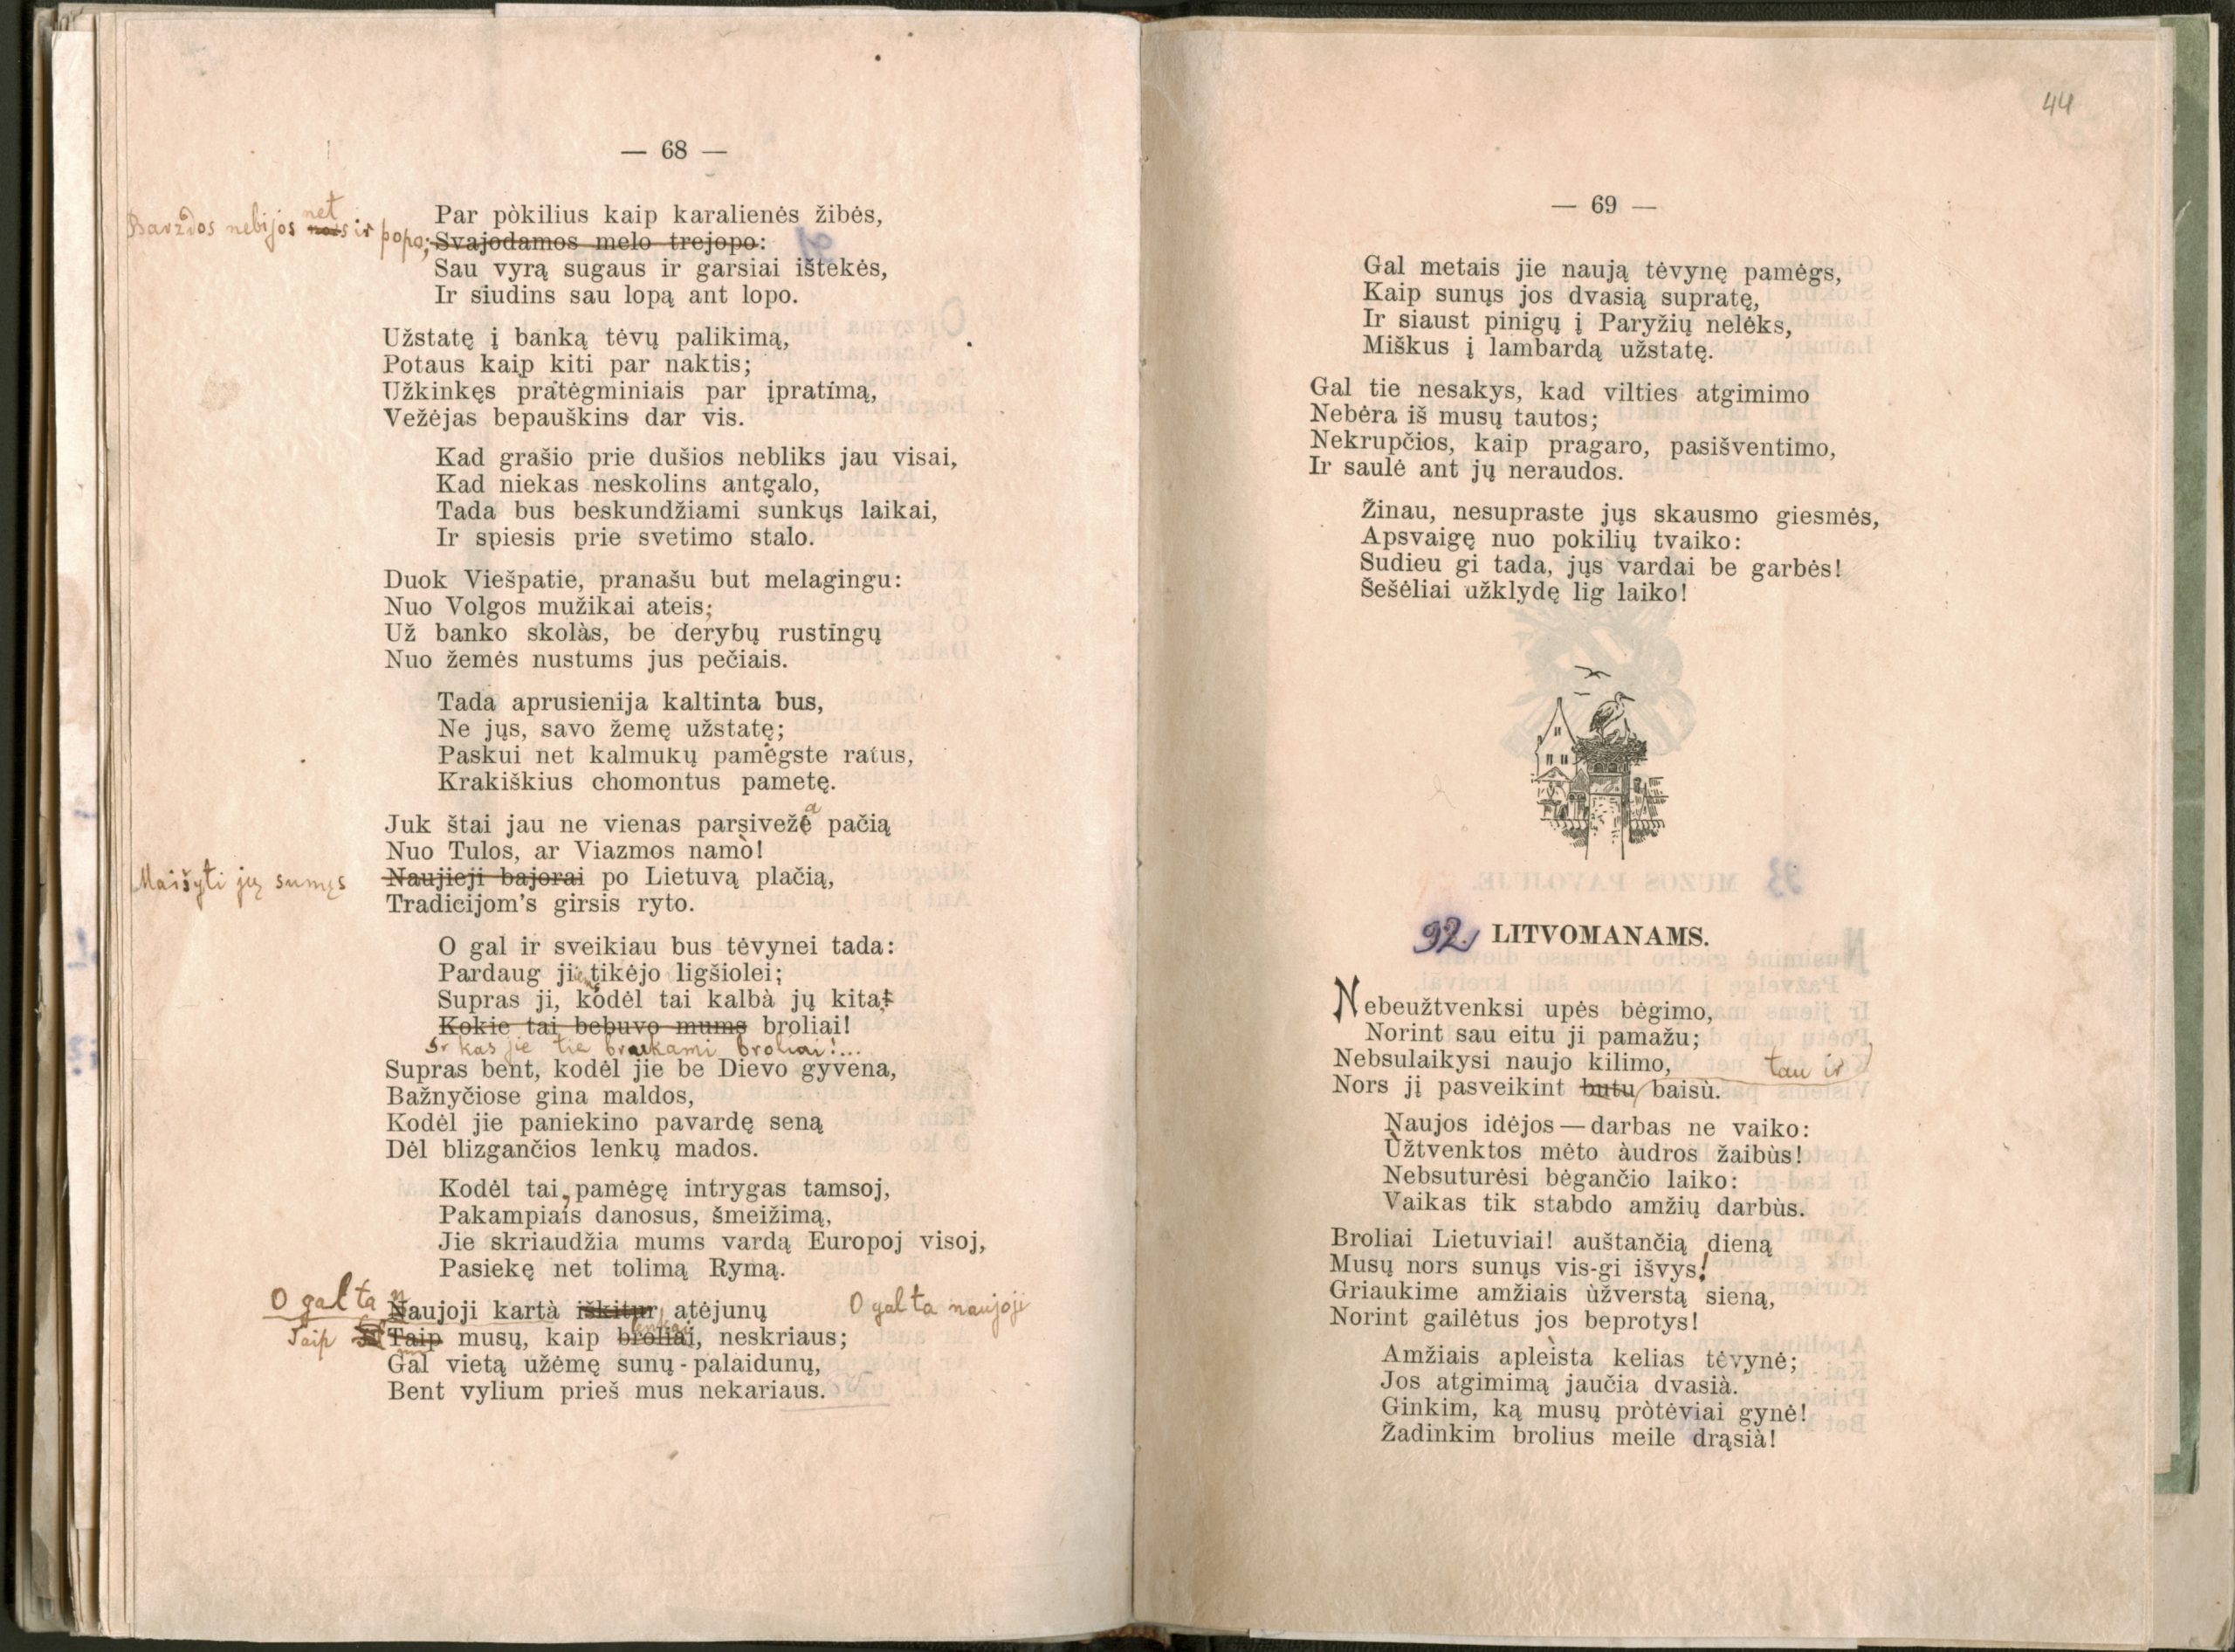 — 68 —
Barzdos nebijos net ir popo;
Par pòkilius kaip karalienės žibės,
Svajodamos melo trejopo:
Sau vyrą sugaus ir garsiai ištekės,
Ir siudins sau lopą ant lopo.
Užstatę į banką tėvų palikimą,
Potaus kaip kiti par naktis;
Užkinkęs pratėgminiais par įpratimą,
Vežėjas bepauškins dar vis.
Kad grašio prie dušios nebliks jau visai,
Kad niekas neskolins antgalo,
Tada bus beskundžiami sunkųs laikai,
Ir spiesis prie svetimo stalo.
Duok Viešpatie, pranašu but melagingu:
Nuo Volgos mužikai ateis;
Už banko skolàs, be derybų rustingų
Nuo žemės nustums jus pečiais.
Tada aprusienija kaltinta bus,
Ne jųs, savo žemę užstatę;
Paskui net kalmukų pamėgste ratus,
Krakiškius chomontus pametę.
Juk štai jau ne vienas parsivežė a pačią
Nuo Tulos, ar Viazmos namò!
Maišyti jų sumųs
Naujieji bajorai po Lietuvą plačią,
Tradicijom's girsis ryto.
O gal ir sveikiau bus tėvynei tada:
Pardaug jie tikėjo ligšiolei;
Supras ji, kodėl tai kalbà jų kita,
Kokie tai bebuvo mums broliai!
Ir kas jie tie braukami broliai!...
Supras bent, kodėl jie be Dievo gyvena,
Bažnyčiose gina maldos,
Kodėl jie paniekino pavardę seną
Dėl blizgančios lenkų mados.
Kodėl tai, pamėgę intrygas tamsoj,
Pakampiais danosus, šmeižimą,
Jie skriaudžia mums vardą Europoj visoj,
Pasiekę net tolimą Rymą.
O gal ta n
Naujoji kartà iškitur, atėjunų
O gal ta naujoji
Taip
Taip musų, kaip broliai, neskriaus;
Gal vietą užėmę sunų-palaidunų,
Bent vylium prieš mus nekariaus.
44
— 69 —
Gal metais jie naują tėvynę pamėgs,
Kaip sunųs jos dvasią supratę,
Ir siaust pinigų į Paryžių nelėks,
Miškus į lambardą užstatę.
Gal tie nesakys, kad vilties atgimimo
Nebėra iš musų tautos;
Nekrupčios, kaip pragaro, pasišventimo,
Ir saulė ant jų neraudos.
Žinau, nesupraste jųs skausmo giesmės,
Apsvaigę nuo pokilių tvaiko:
Sudieu gi tada, jųs vardai be garbės!
Šešėliai užklydę lig laiko!
92. LITVOMANAMS.
Nebeužtvenksi upės bėgimo,
Norint sau eitu ji pamažu;
Nebsulaikysi naujo kilimo,
tau ir
Nors jį pasveikint butu baisù.
Naujos idėjos — darbas ne vaiko:
Užtvenktos mėto àudros žaibùs!
Nebsuturėsi bėgančio laiko:
Vaikas tik stabdo amžių darbùs.
Broliai Lietuviai! auštančią dieną
Musų nors sunųs vis-gi išvys!
Griaukime amžiais ùžverstą sieną,
Norint gailėtus jos beprotys!
Amžiais apleista kelias tėvynė;
Jos atgimimą jaučia dvasià.
Ginkim, ką musų pròtėviai gynė!
Žadinkim brolius meile drąsià!